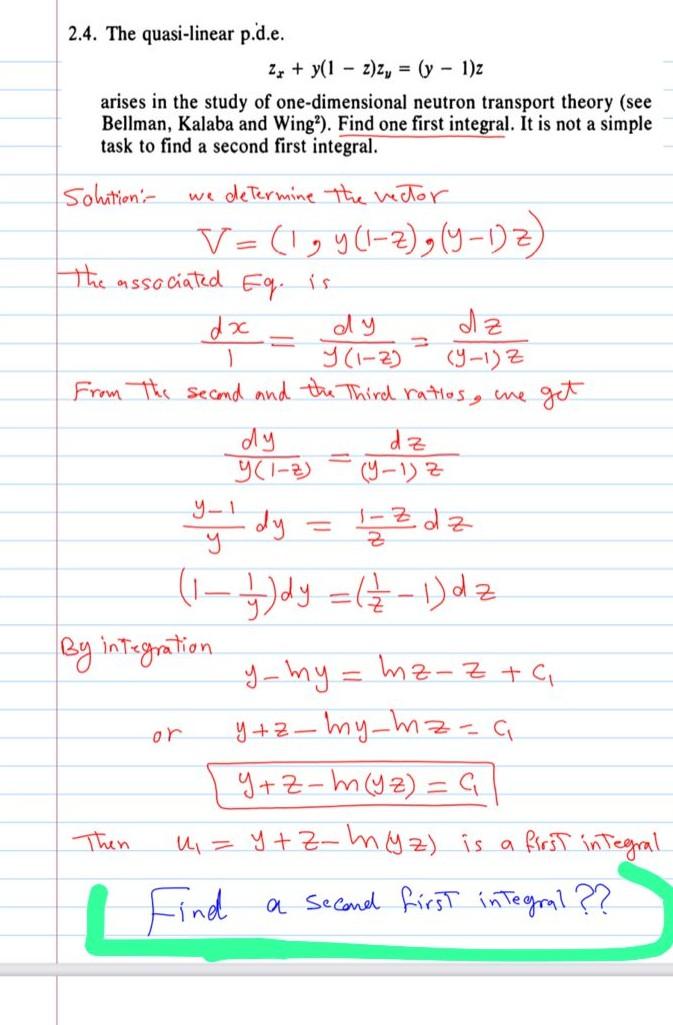 2.4. The quasi-linear p.d.e.
zₓ + y(1 − z)z_y = (y − 1)z
arises in the study of one-dimensional neutron transport theory (see
Bellman, Kalaba and Wing²). Find one first integral. It is not a simple
task to find a second first integral.
Solution:- we determine the vector
V = (1, y(1-z), (y-1)z)
The associated Eq. is
dx/1 = dy/y(1-z) = dz/(y-1)z
From the second and the Third ratios, we get
dy/y(1-z) = dz/(y-1)z
y-1/y dy = 1-z/z dz
(1 - 1/y)dy = (1/z - 1)dz
By integration
y - ln y = ln z - z + C₁
or y + z - ln y - ln z = C₁
y + z - ln(yz) = C₁
Then u₁ = y + z - ln(yz) is a first integral
Find a second first integral??